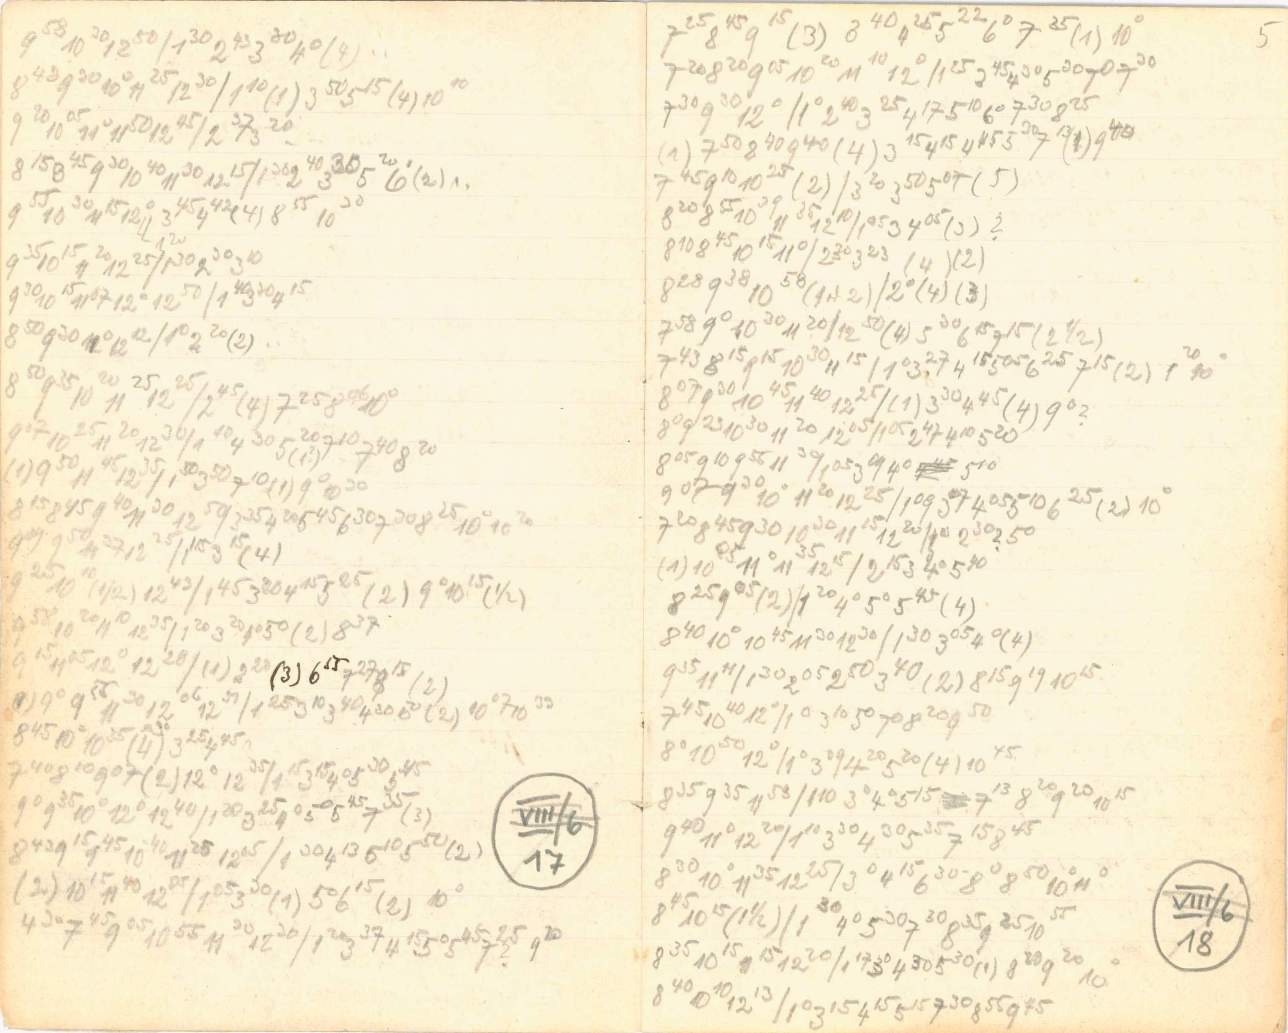 9⁵⁸10³⁰12⁵⁰/1³⁰2⁴³3³⁰4⁰(4)
8⁴³9³⁰10⁰11²⁵12³⁰/1¹⁰(1)3⁵⁰5¹⁵(4)10¹⁰
9²⁰10⁰⁵11⁰11⁵⁰12⁴⁵/2³⁷3²⁰
8¹⁵8⁴⁵9³⁰10⁴⁰11³⁰12¹⁵/1³⁰2⁴⁰3³⁰5²⁰6⁰(2)
9⁵⁵10³⁰11¹⁵12⁰ 3⁴⁵4⁴²(4)8⁵⁵10³⁰
9³⁵10¹⁵11²⁰12²⁵/1³⁰2³⁰3¹⁰
9³⁰10¹⁵11⁰⁷12⁰12⁵⁰/1⁴⁰3³⁰4¹⁵
8⁵⁰9³⁰11⁰12¹²/1⁰2²⁰(2)
8⁵⁰9³⁵10²⁰11²⁵12²⁵/2⁴⁵(4)7²⁵8 10⁰
9⁰⁷10²⁵11²⁰12³⁰/1¹⁰4³⁰5²⁰(1)7¹⁰7⁴⁰8²⁰
(1)9⁵⁰11⁴⁵12³⁵/1 3⁵⁰7¹⁰(1)9⁰10³⁰
8¹⁵8⁴⁵9⁴⁰11³⁰12⁵⁹3³⁵4²⁰5⁴⁵6³⁰7³⁰8²⁵10⁰10²⁰
9 9⁵⁰11³⁷12²⁵/1¹⁵3¹⁵(4)
9²⁵10¹⁰(1/2)12⁴³/1⁴⁵3²⁰4¹⁵5²⁵(2)9⁰10¹⁵(1/2)
9⁵⁸10²⁰11¹⁰12³⁵/1²⁰3²⁰ 5⁰(2)8³⁷
9¹⁵11⁰⁵12⁰12²⁸/(1)2²⁸(3)6⁵⁵7²⁷8¹⁵(2)
(1)9⁰9⁵⁵11³⁰12⁰⁶12³⁷/1²⁵3¹⁰3⁴⁰4³⁰6⁰(2)10⁰⁷10³³
8⁴⁵10⁰10³⁵(4)3²⁵4⁴⁵
7⁴⁰8¹⁰9⁰⁷(2)12⁰12³⁵/1¹⁵3¹⁵4⁰5³⁰5⁴⁵
9⁰9³⁵10⁰12⁰12⁴⁰/1²⁰3²⁵4⁰5⁰5⁴⁵7³⁵(3)
8⁴³9¹⁵9⁴⁵10⁴⁰11²⁵12⁰⁵/1³⁰4¹³5¹⁰5⁵⁰(2)
(2)10¹⁵11⁴⁰12²⁵/1⁰⁵3³⁰(1)5⁰6¹⁵(2)10⁰
4³⁰7⁴⁵9⁰⁵10⁵⁵11³⁰12³⁰/1²⁰3³⁷4¹⁵5⁰5⁴⁵7²⁵?9²⁰
VIII/6
17
5
7²⁵8⁴⁵9¹⁵(3)3⁴⁰4²⁵5²²6⁰7³⁵(1)10⁰
7²⁰8²⁰9⁰⁵10²⁰11¹⁰12⁰/1²⁵3⁴⁵4³⁰5³⁰7⁰7³⁰
7³⁰9³⁰12⁰/1⁰2⁴⁰3²⁵4¹⁷5¹⁰6⁰7³⁰8²⁵
(1)7⁵⁰8⁴⁰9⁴⁰(4)3¹⁵4¹⁵4⁴⁵5³⁰7¹³(1)9
7⁴⁵9¹⁰10²⁵(2)/3²⁰3⁵⁰5⁰⁵(5)
8²⁰8⁵⁵10³⁹11³⁵12¹⁰/1⁰⁵3 4⁰⁵(3)?
8¹⁰8⁴⁵10¹⁵11⁰/2³⁰3²³(4)(2)
8²⁸9³⁸10⁵⁸(1+2)/2⁰(4)(3)
7⁵⁸9⁰10³⁰11²⁰/12⁵⁰(4)5³⁰6¹⁵7¹⁵(2 1/2)
7⁴³8¹⁵9¹⁵10³⁰11¹⁵/1⁰3²⁷4¹⁵5⁰⁵6²⁵7¹⁵(2)9²⁰10⁰
8⁰⁷9³⁰10⁴⁵11⁴⁰12²⁵/(1)3³⁰4⁴⁵(4)9⁰?
8⁰9²³10³⁰11²⁰12⁰⁵/1⁰⁵2⁴⁷4¹⁰5²⁰
8⁰⁵9¹⁰9⁵⁵11³⁹/1⁰⁵3⁰⁹4⁰ 5¹⁰
9⁰⁷9³⁰10⁰11²⁰12²⁵/1⁰⁹3⁰⁷4⁰⁵5¹⁰6²⁵(2)10⁰
7²⁰8⁴⁵9³⁰10³⁰11¹⁵12²⁰/1⁰2³⁰?5⁰
(1)10⁰⁵11⁰11³⁵12¹⁵/2¹⁵3 4⁰5⁴⁰
8²⁵9⁰⁵(2)/1²⁰4⁰5⁰5⁴⁵(4)
8⁴⁰10⁰10⁴⁵11³⁰12³⁰/1³⁰3⁰⁵4⁰(4)
9³⁵11¹¹/1³⁰2⁰⁵2⁵⁰3⁴⁰(2)8¹⁵9¹⁹10¹⁵
7⁴⁵10⁴⁰12⁰/1⁰3¹⁰5⁰7⁰8²⁰9⁵⁰
8⁰10⁵⁰12⁰/1⁰3⁰⁹4²⁰5²⁰(4)10⁴⁵
8³⁵9³⁵11⁵⁸/1¹⁰3⁰4⁰5¹⁵ 7¹³8²⁰9²⁰10¹⁵
9⁴⁰11⁰12²⁰/1¹⁰3³⁰4³⁰5³⁵7¹⁵8⁴⁵
8³⁰10⁰11³⁵12²⁵/3⁰4¹⁵6³⁰8⁰8⁵⁰10⁰11⁰
8⁴⁵10¹⁵(1 1/2)/1³⁰4⁰5³⁰7³⁰8³⁵9²⁵10⁵⁵
8³⁵10¹⁵11¹⁵12²⁰/1¹⁷3⁰4³⁰5³⁰(1)8²⁰9²⁰10⁰
8⁴⁰10¹⁰12¹³/1⁰3¹⁵4¹⁵5¹⁵7³⁰8⁵⁵9⁴⁵
VIII/6
18